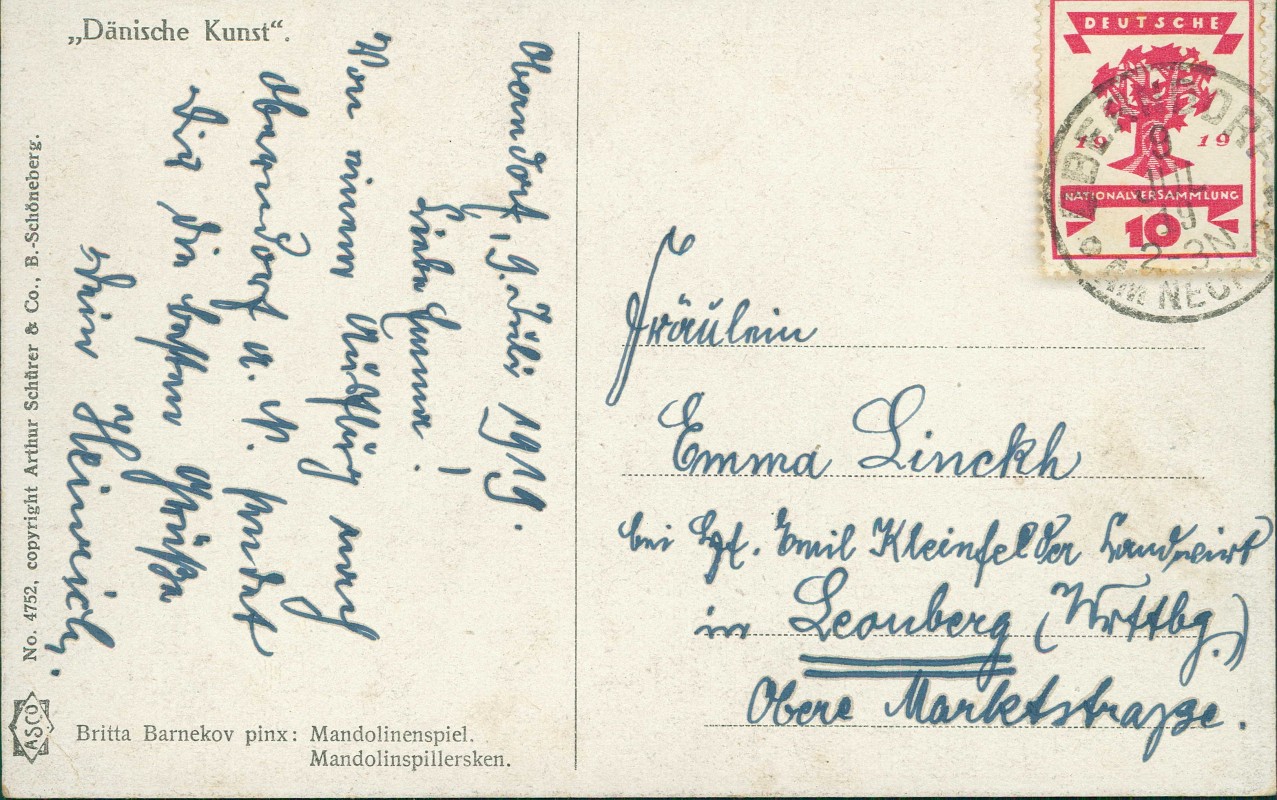 „Dänische Kunst“.
Oberndorf, 9. Juli 1919.
Liebe Emma!
Von einem Ausflug nach
Oberndorf a. N. sendet
Dir die besten Grüße
Dein Heinrich.
No. 4752, copyright Arthur Schürer & Co., B.-Schöneberg.
ASCO
Britta Barnekov pinx: Mandolinenspiel.
Mandolinspillersken.
DEUTSCHE
1919
NATIONALVERSAMMLUNG
10
OBERNDORF
9
JUL
19
2-3N
am NECK
Fräulein
Emma Linckh
bei Emil Kleinfelder Landwirt
in Leonberg (Wrttbg.)
Obere Marktstrasse.